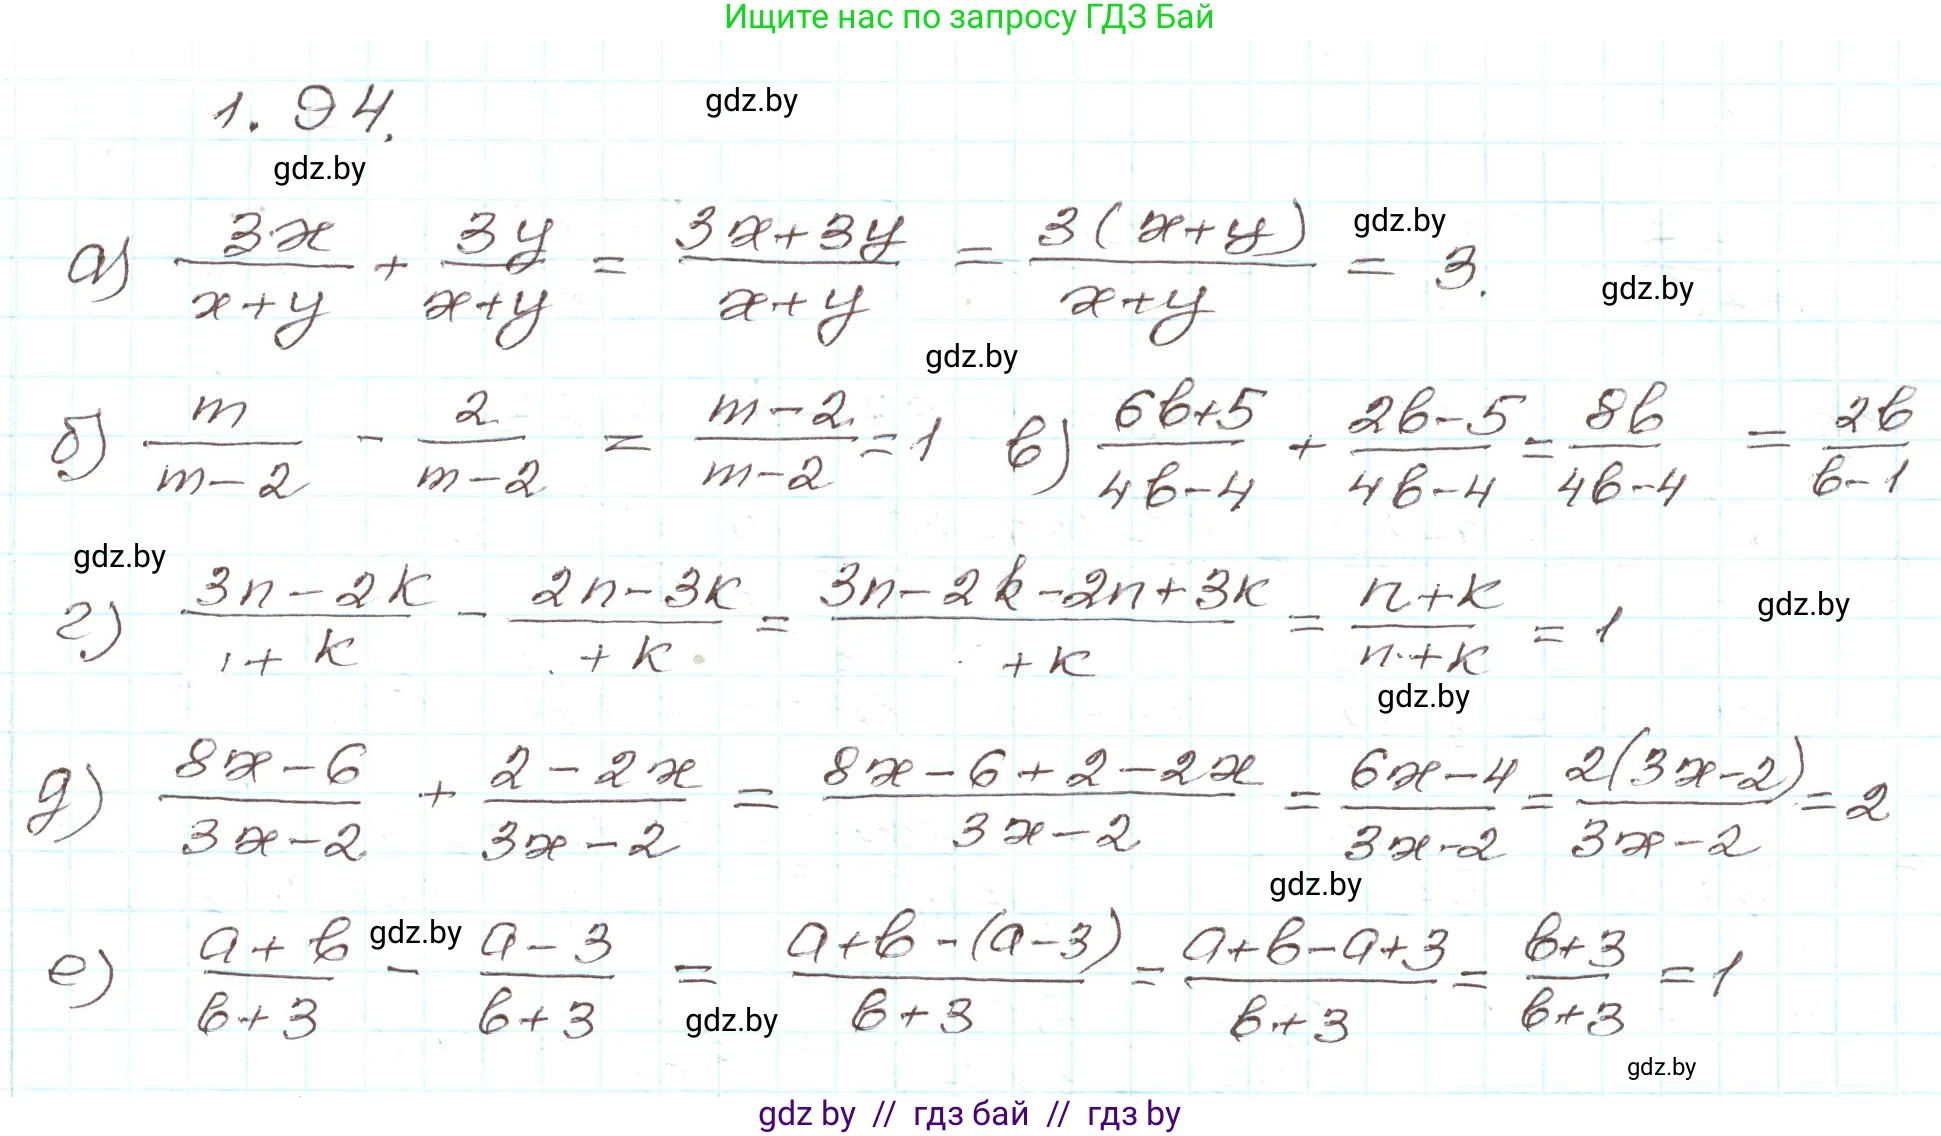 Ищите нас по запросу ГДЗ Бай
1.94.
gdz.by
gdz.by
а) 3x/(x+y) + 3y/(x+y) = (3x+3y)/(x+y) = 3(x+y)/(x+y) = 3.
gdz.by
gdz.by
gdz.by
б) m/(m-2) - 2/(m-2) = (m-2)/(m-2) = 1 в) (6b+5)/(4b-4) + (2b-5)/(4b-4) = 8b/(4b-4) = 2b/(b-1)
gdz.by
г) (3n-2k)/(+k) - (2n-3k)/(+k) = (3n-2k-2n+3k)/(+k) = (n+k)/(n+k) = 1
gdz.by
gdz.by
д) (8x-6)/(3x-2) + (2-2x)/(3x-2) = (8x-6+2-2x)/(3x-2) = (6x-4)/(3x-2) = 2(3x-2)/(3x-2) = 2
gdz.by
е) (a+b)/(b+3) - (a-3)/(b+3) = (a+b-(a-3))/(b+3) = (a+b-a+3)/(b+3) = (b+3)/(b+3) = 1
gdz.by
gdz.by
gdz.by
gdz by // гдз бай // гдз by